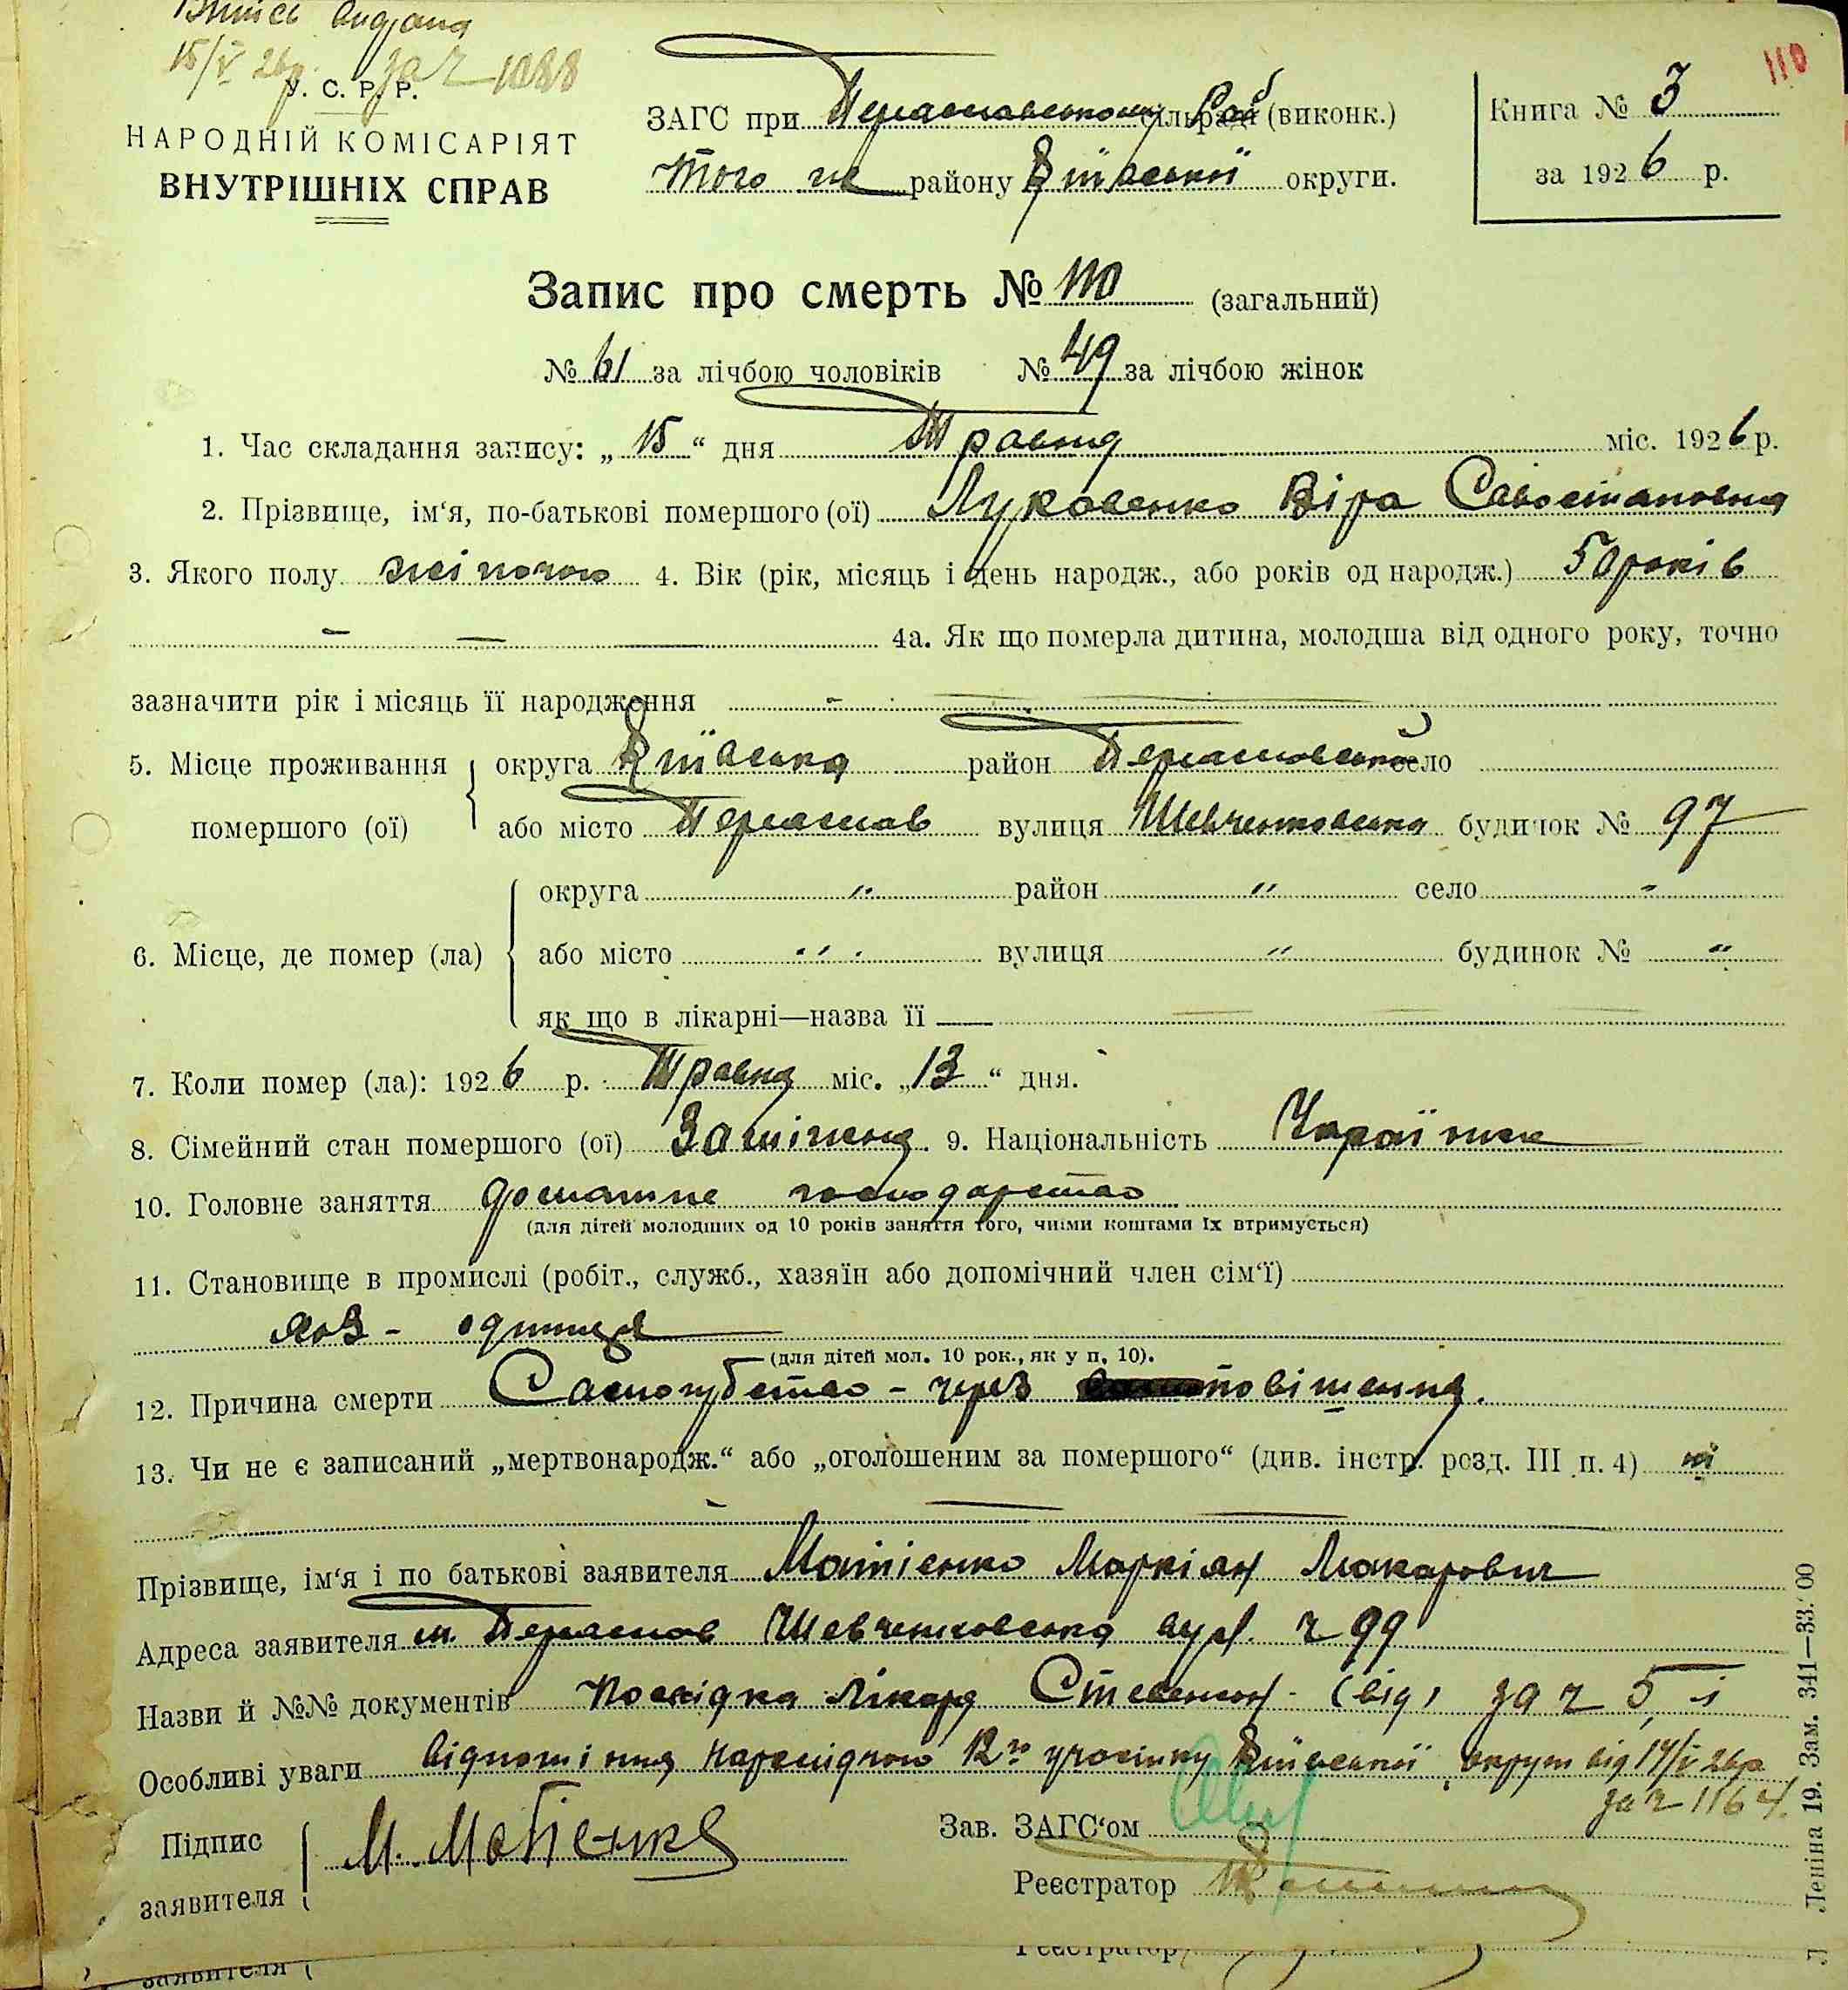 15/V 26р. за ч 1088
У. С. Р. Р.
НАРОДНІЙ КОМІСАРІЯТ
ВНУТРІШНІХ СПРАВ
ЗАГС при Переяславському сільраді (виконк.)
того ж району Київської округи.
Книга № 3
за 1926 р.
110
Запис про смерть № 110 (загальний)
№ 61 за лічбою чоловіків № 49 за лічбою жінок
1. Час складання запису: „ 15 “ дня Травня міс. 1926 р.
2. Прізвище, ім‘я, по-батькові помершого (ої) Луковенко Віра Савостиановна
3. Якого полу жіночого 4. Вік (рік, місяць і день народж., або років од народж.) 50 років
4а. Як що померла дитина, молодша від одного року, точно
зазначити рік і місяць її народження
5. Місце проживання помершого (ої) округа Київська район Переяславський село
або місто Переяслав вулиця Шевченковська будинок № 97
6. Місце, де помер (ла) округа „ район „ село „
або місто „ вулиця „ будинок № „
як що в лікарні—назва її —
7. Коли помер (ла): 1926 р. Травня міс. „ 13 “ дня.
8. Сімейний стан помершого (ої) Заміжня 9. Національність Українка
10. Головне заняття домашнє господарство
(для дітей молодших од 10 років заняття того, чиїми коштами їх втримується)
11. Становище в промислі (робіт., служб., хазяїн або допомічний член сім‘ї)
(для дітей мол. 10 рок., як у п. 10).
12. Причина смерти Самогубство - через повішення.
13. Чи не є записаний „мертвонародж.“ або „оголошеним за помершого“ (див. інстр. розд. III п. 4) ні
Прізвище, ім‘я і по батькові заявителя Матієнко Маркіян Макарович
Адреса заявителя м. Переяслав Шевченковська вул. ч 99
Назви й №№ документів посвідка лікаря від за ч 5 і
Особливі уваги відношення Нарслідчого 12го участку Київської округи від 14/V 26р
за ч 1164.
Підпис заявителя М. Матієнко
Зав. ЗАГС‘ом
Реєстратор
Реєстратор
заявителя
Леніна 19. Зам. 341—33.000